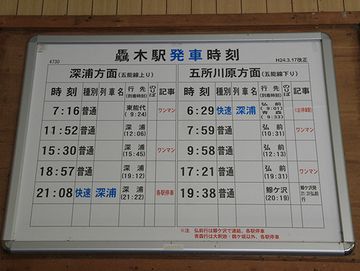 驫木駅発車時刻
4730
H24.3.17改正
深浦方面(五能線上り)
時刻 種別 列車名 行先(到着時刻) のりば 記事
7:16 普通 東能代(9:24) ワンマン
11:52 普通 深浦(12:06)
15:30 普通 深浦(15:45) ワンマン
18:57 普通 深浦(19:12)
21:08 快速 深浦 深浦(21:22) 各駅停車
五所川原方面(五能線下り)
時刻 種別 列車名 行先(到着時刻) のりば 記事
6:29 快速 深浦 弘前 青森
7:59 普通 弘前(10:31) ワンマン
9:58 普通 弘前(12:13)
17:21 普通 弘前(19:31) ワンマン
19:38 普通 鰺ケ沢(20:19)
※注 弘前行は鰺ケ沢で連結、各駅停車